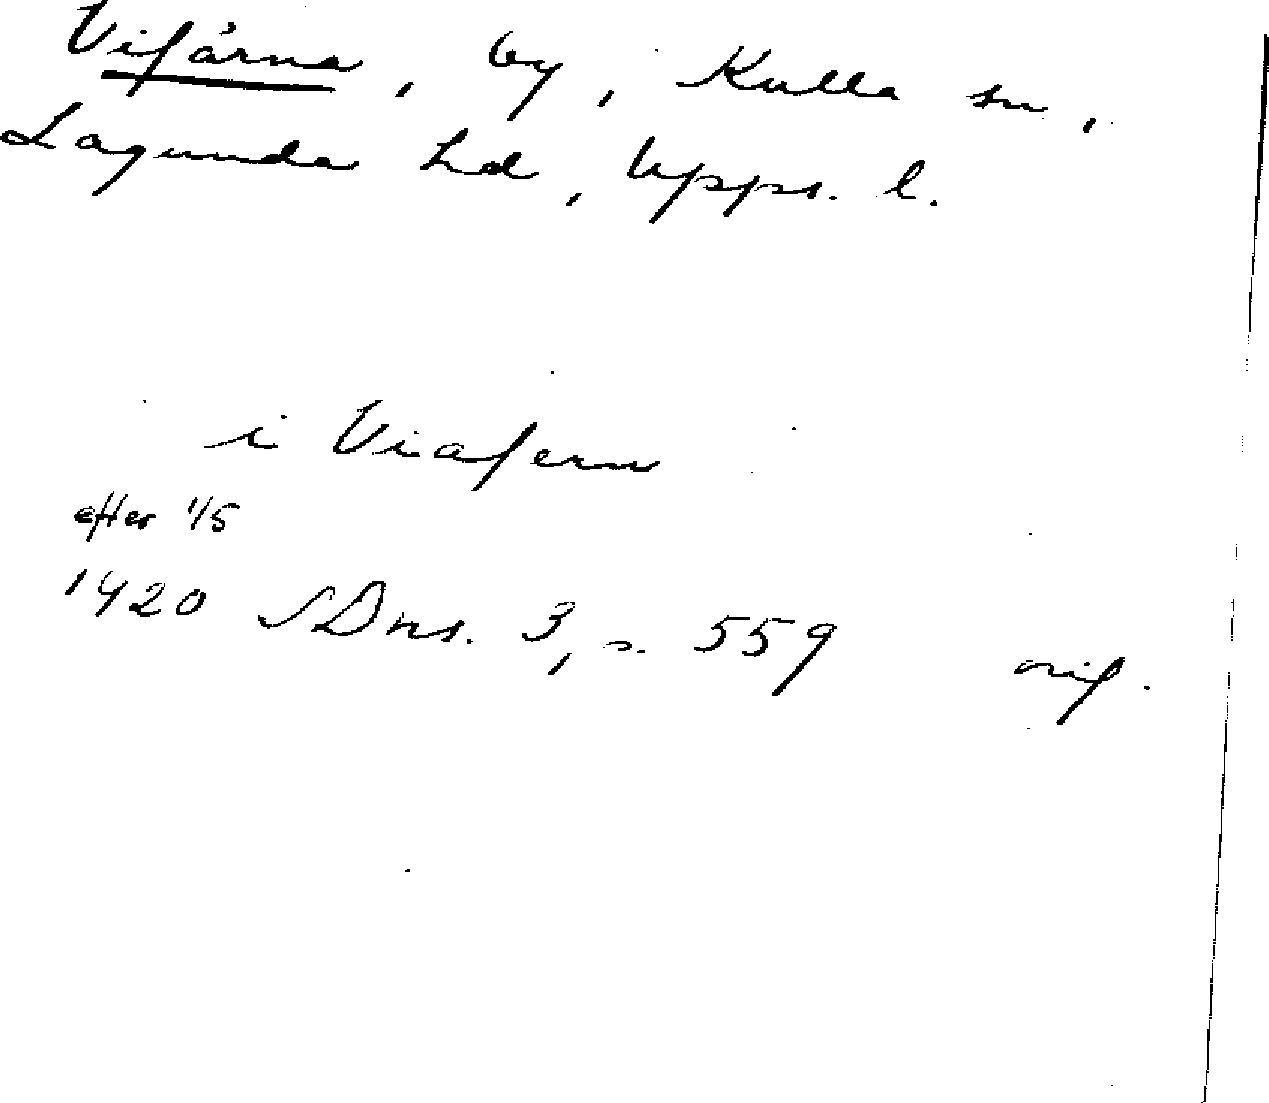 Vifärna, by, Kulla sn,
Lagunda hd, Upps. l.
i Viafern
efter 1/5
1420 SDns. 3, s. 559 orig.